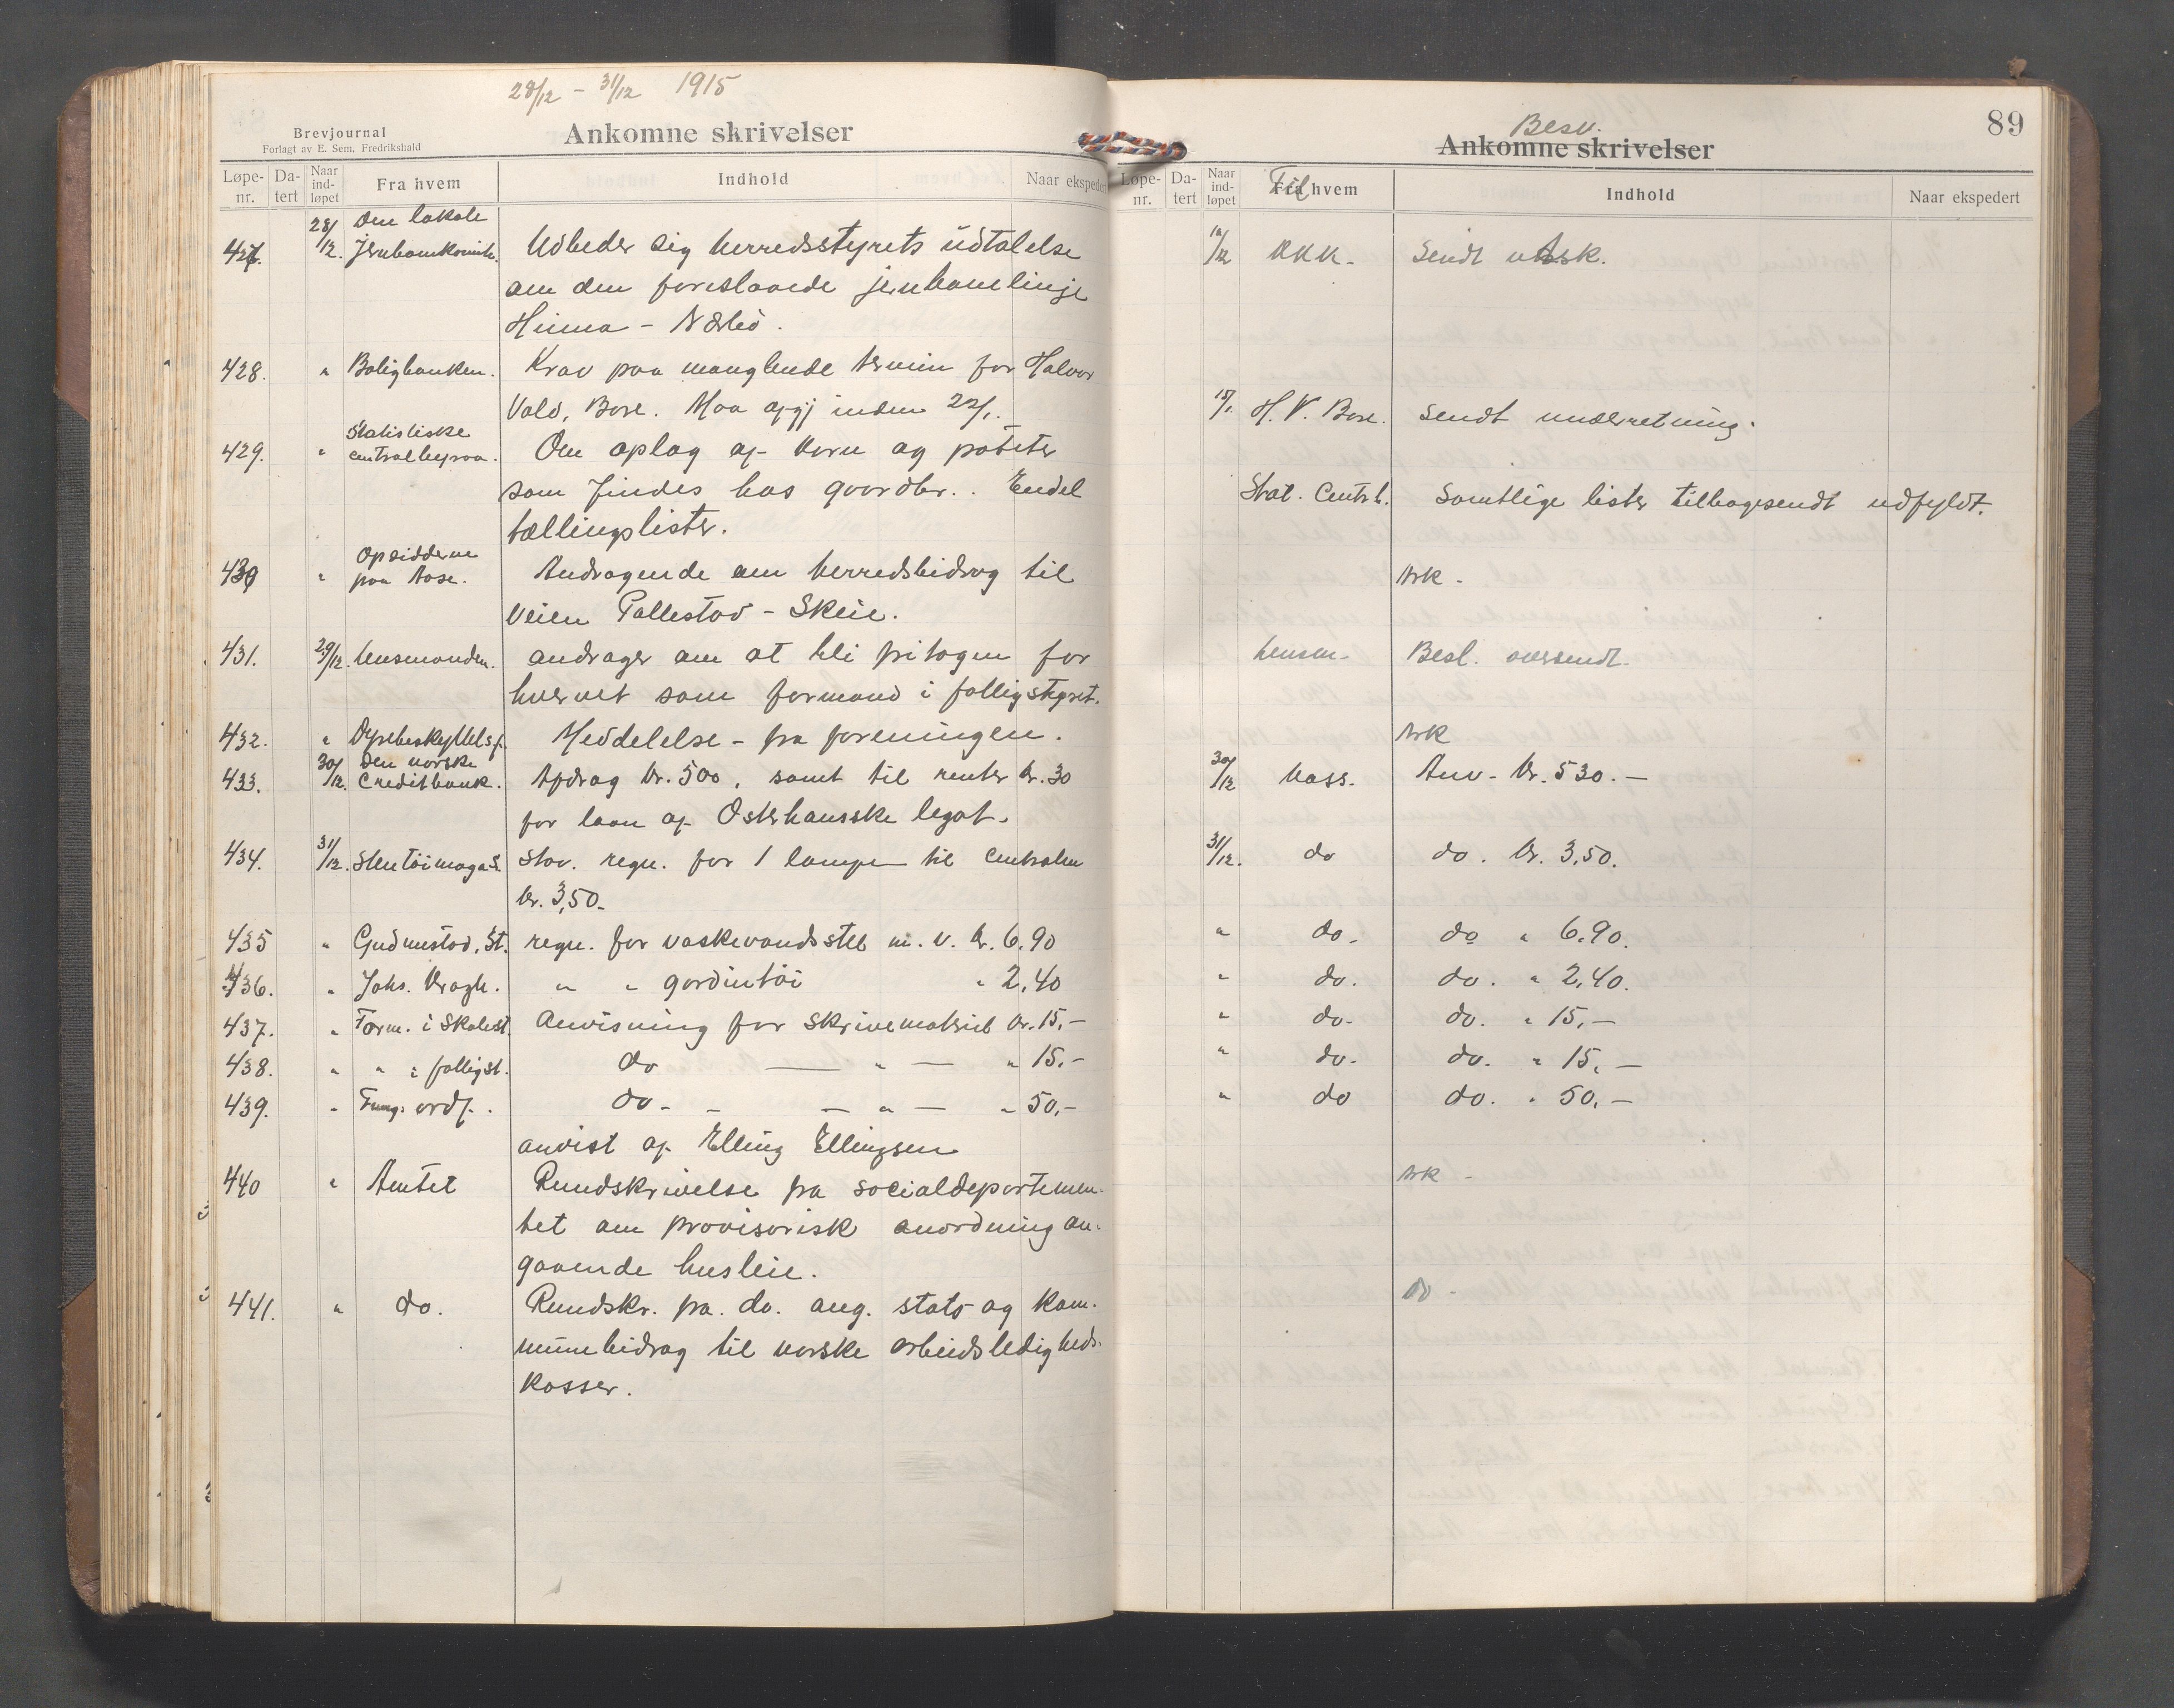 28/12 - 31/12 1915
Brevjournal
Forlagt av E. Sem, Fredrikshald
Ankomne skrivelser
Løpe-nr. Da-tert Naar ind-løpet Fra hvem Indhold Naar ekspedert
427. 28/12. Den lokale Jernbanekomite. Udbeder sig herredsstyrets udtalelse
om den foreslaaede jernbanelinje
Hinna - Nærbø.
428. " Boligbanken. Krav paa manglende termin for Halvor
Vold, Bore. Maa afgj inden 22/1.
429. " Statistiske centralbyraa. Om oplag af korn og poteter
som findes hos gaardbr.. Endel
tællingslister.
430 " Opsidderne paa Aase. Andragende om herredsbidrag til
veien Pallestad - Skeie.
431. 29/12. Lensmanden. andrager om at bli fritagen for
hvervet som formand i fattigstyret.
432. " Dyrebeskyttelsf. Meddelelse - fra foreningen.
433. 30/12. Den norske Creditbank. Afdrag kr. 500, samt til renter kr. 30
for laan af Osterhausske legat.
434. 31/12. Stentøimagas. Stav. regn. for 1 lampe til centralen
kr. 3,50-
435 " Gudmestad, St. regn. for vaskevandsstel m. v. kr. 6,90
436. " Johs. Kragh. " " gardintøi " 2,40
437. " Form. i Skolest. Anvisning for skrivematriel kr. 15,-
438. " " " fattigst. do — " — " 15.-
439. " Fung. ordf. do. - — " — " 50,-
anvist af Elling Ellingsen
440 " Amtet Rundskrivelse fra socialdepartemen-
tet om provisorisk anordning an-
gaaende husleie.
441. " do. Rundskr. fra do. ang. stats og kom-
munebidrag til norske arbeidsledigheds-
kasser.
89
Besv.
Ankomne skrivelser
Løpe-nr. Da-tert Naar ind-løpet Fra hvem Til Indhold Naar ekspedert
Sendt
15/1 H. V. Bore. Sendt underretning.
Stat. Centrb. Samtlige lister tilbagesendt udfyldt.
Ark -
Lensm- Besl. oversendt.
Ark
30/12 Kass. Anv- Kr. 530. —
31/12. do do. Kr. 3,50.
" do. do " 6.90.
" do. do. " 2,40.
" do- do. " 15,—
" do. do. " 15,—
" do do. " 50,—
Ark -
do -